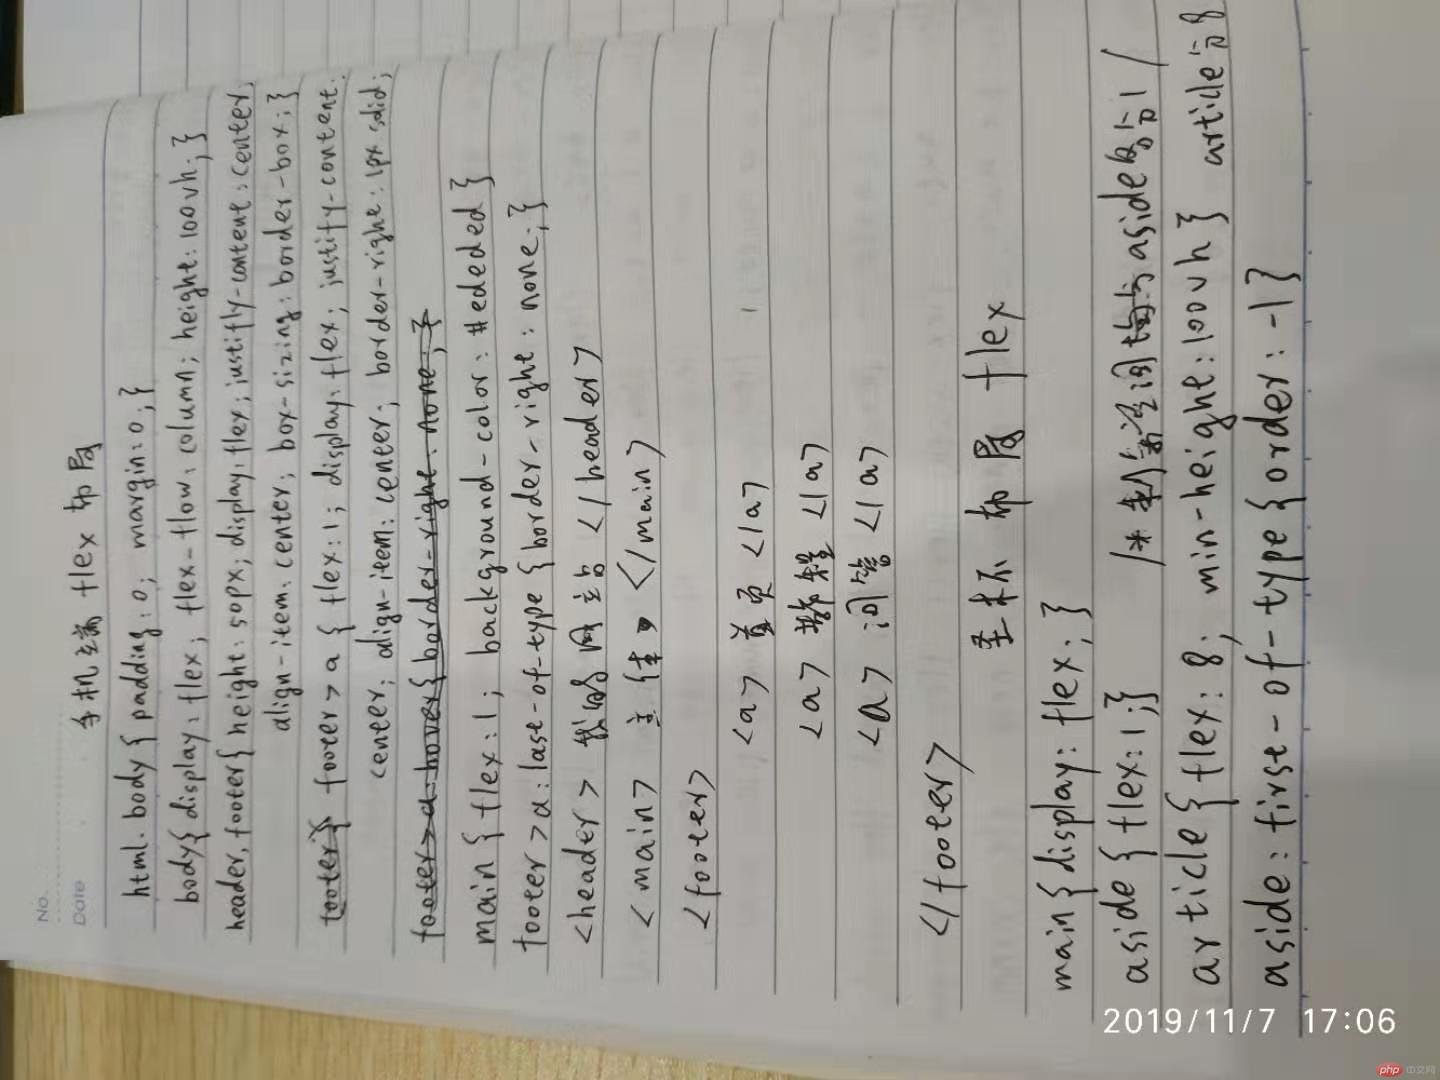 No.
Date
手机端 flex 布局
html.body{padding:0; margin:0;}
body{display:flex; flex-flow:column; height:100vh;}
header,footer{height:50px; display:flex; justify-content:center;
align-item:center; box-sizing:border-box;}
footer} footer>a{flex:1; display:flex; justify-content:
center; align-item:center; border-right:1px solid;
footer>a:hover{border-right:none;}
main{flex:1; background-color:#ededed}
footer>a:last-of-type{border-right:none;}
<header>我的网站</header>
<main>主体</main>
<footer>
<a>首页</a>
<a>教程</a>
<a>问答</a>
</footer>
圣杯布局 flex
main{display:flex;}
aside{flex:1;} /* 剩余空间 与aside各占1/
article{flex:8; min-height:100vh} article占8
aside:first-of-type{order:-1}
2019/11/7 17:06
php 中文网